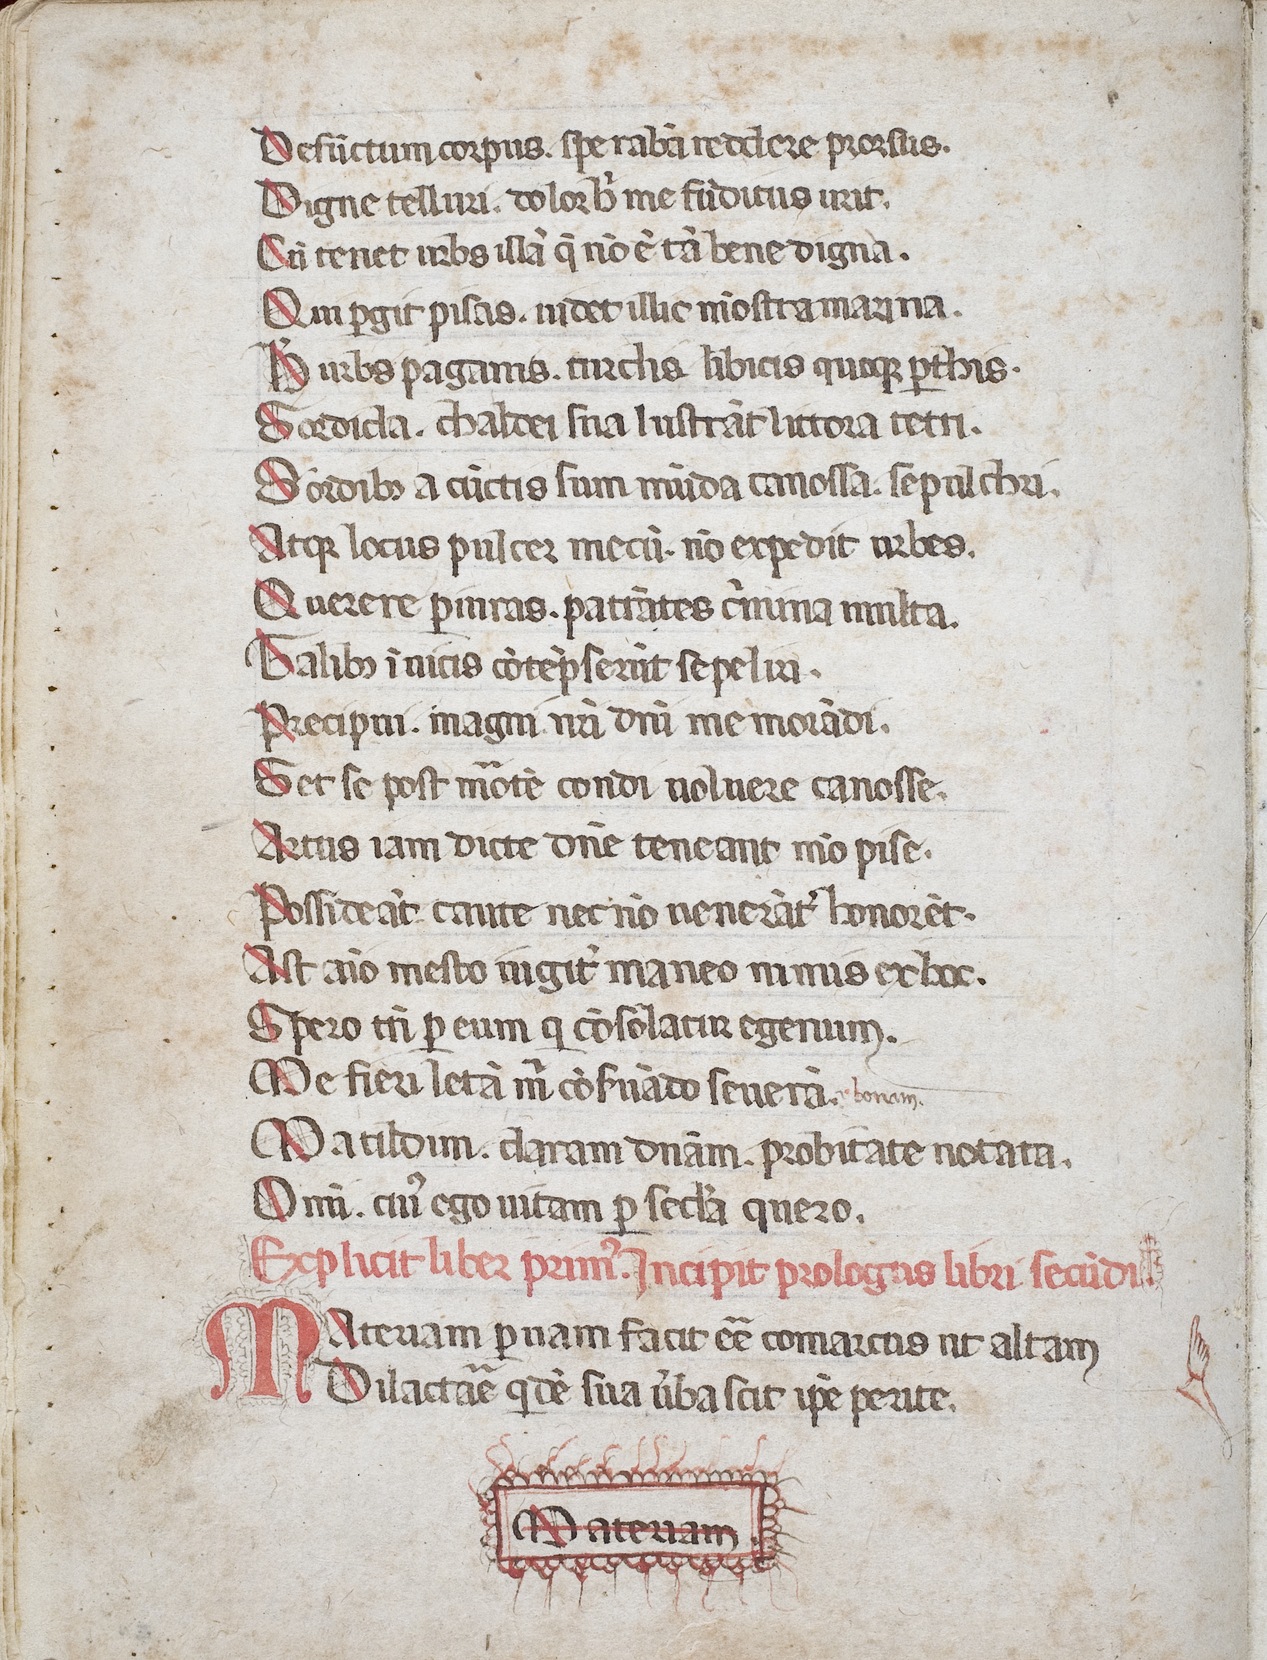 Defūctum corpus. sperabā reddere prorsus.
Digne telluri. dolor hͥ me fūditus urit.
Cū tenet urbs illā q̄ nō ē tā bene digna.
Qui ꝑgit pisas. uidet illic mostra marina.
H̾ urbs paganis. turchis libicis quoqꝫ ꝑthis.
Sordida. chaldei sua lustrāt littora tetri.
Sordibꝫ a cūctis sum mūda canossa. sepulchri.
Atqꝫ locus pulcer mecū. nō expedit urbes.
Querere ꝑiuras. patrātes cͥmina multa.
Talibꝫ ī uicis cōtēpserūt sepeliri.
Precipui. magni. nrī dn̄i memorādi.
Set se post mōtē condi uoluere canosse.
Artus iam dicte dn̄e teneant nō pise.
Possideāt caute nec nō uenerāt᷑ honorēt.
Ast aīo mesto iugit᷑ maneo nimis ex hoc.
Spero tn̄ ꝑ eum q̇ cōsolatur egenum.
Me fieri letā m̄ cōfuādo seuerā. bonam.
Matildim. claram dnām. probitate notata.
Omī. cuiꝰ ego uitam ꝑ secl̄a quero.
Explicit liber primꝰ. Incipit prologus libri secūdi.
MAteriam ꝑuam facit eē̄ comarcus ut altam
Dilactāē qͥdē sua ūba scit ip̄e perite.
Materiam.